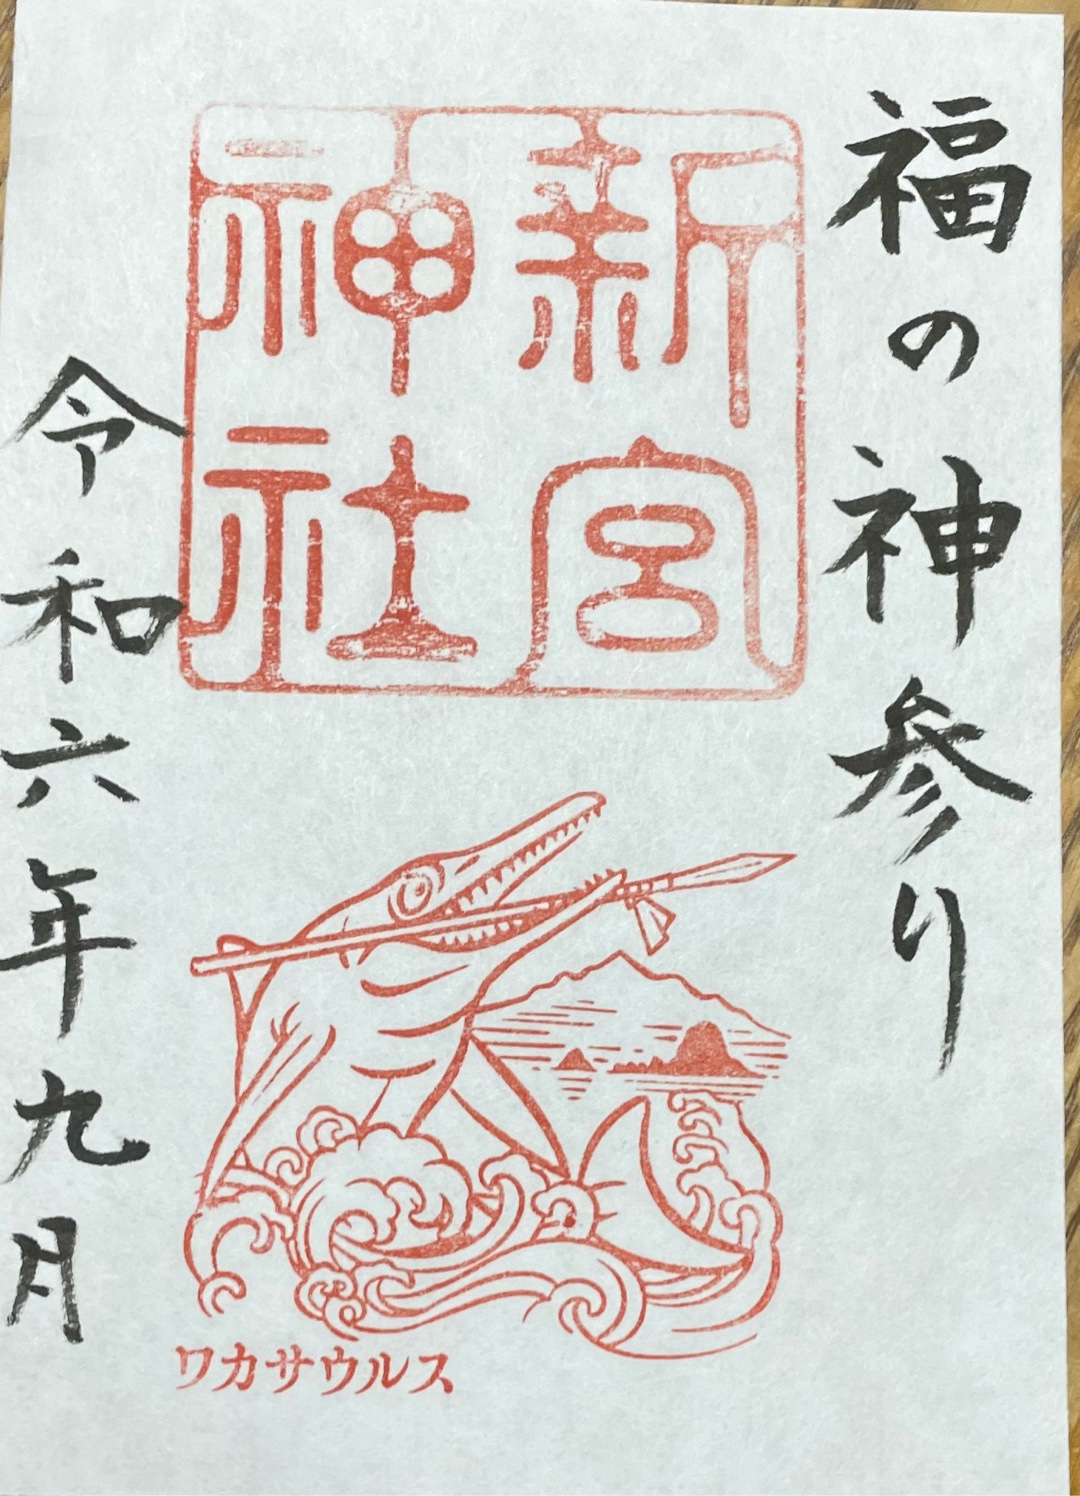 福の神参り
新宮
神社
令和六年九月
ワカサウルス